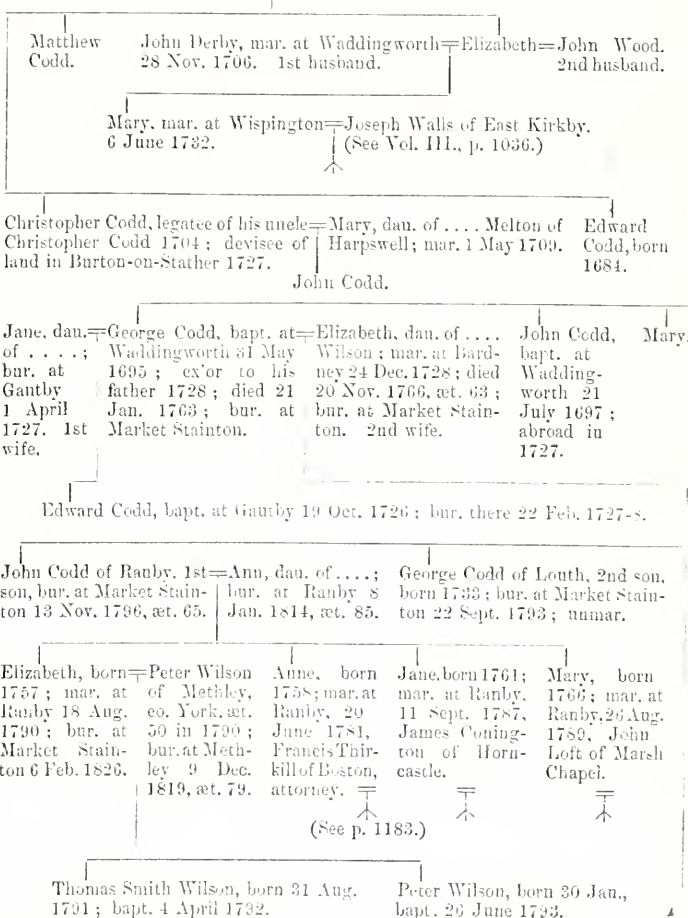 Matthew
Codd.
John Derby, mar. at Waddingworth=Elizabeth=John Wood.
28 Nov. 1706. 1st husband.
2nd husband.
Mary, mar. at Wispington=Joseph Walls of East Kirkby.
6 June 1732.
(See Vol. III., p. 1036.)
Christopher Codd, legatee of his uncle=Mary, dau. of .... Melton of
Christopher Codd 1704 ; devisee of
Harpswell ; mar. 1 May 1709.
land in Burton-on-Stather 1727.
Edward
Codd, born
1684.
John Codd.
Jane, dau.=
of . . . . ;
bur. at
Gautby
1 April
1727. 1st
wife.
George Codd, bapt. at=
Waddingworth 31 May
1695 ; ex'or to his
father 1728 ; died 21
Jan. 1763 ; bur. at
Market Stainton.
Elizabeth, dau. of ....
Wilson ; mar. at Bard-
ney 24 Dec. 1728 ; died
20 Nov. 1766, æt. 63 ;
bur. at Market Stain-
ton. 2nd wife.
John Codd,
bapt. at
Wadding-
worth 21
July 1697 ;
abroad in
1727.
Mary.
Edward Codd, bapt. at Gautby 19 Oct. 1726 ; bur. there 22 Feb. 1727-8.
John Codd of Ranby, 1st=
son, bur. at Market Stain-
ton 13 Nov. 1796, æt. 65.
Ann, dau. of .... ;
bur. at Ranby 8
Jan. 1814, æt. 85.
George Codd of Louth, 2nd son,
born 1733 ; bur. at Market Stain-
ton 22 Sept. 1793 ; unmar.
Elizabeth, born=
1757 ; mar. at
Ranby 18 Aug.
1790 ; bur. at
Market Stain-
ton 6 Feb. 1826.
Peter Wilson
of Methley,
co. York, æt.
50 in 1790 ;
bur. at Meth-
ley 9 Dec.
1819, æt. 79.
Anne, born
1758; mar. at
Ranby, 20
June 1781,
Francis Thir-
kill of Boston,
attorney.
Jane, born 1761;
mar. at Ranby.
11 Sept. 1787,
James Coning-
ton of Horn-
castle.
Mary, born
1766; mar. at
Ranby, 26 Aug.
1789, John
Loft of Marsh
Chapel.
(See p. 1183.)
Thomas Smith Wilson, born 31 Aug.
1791 ; bapt. 4 April 1792.
Peter Wilson, born 30 Jan.,
bapt. 26 June 1793.